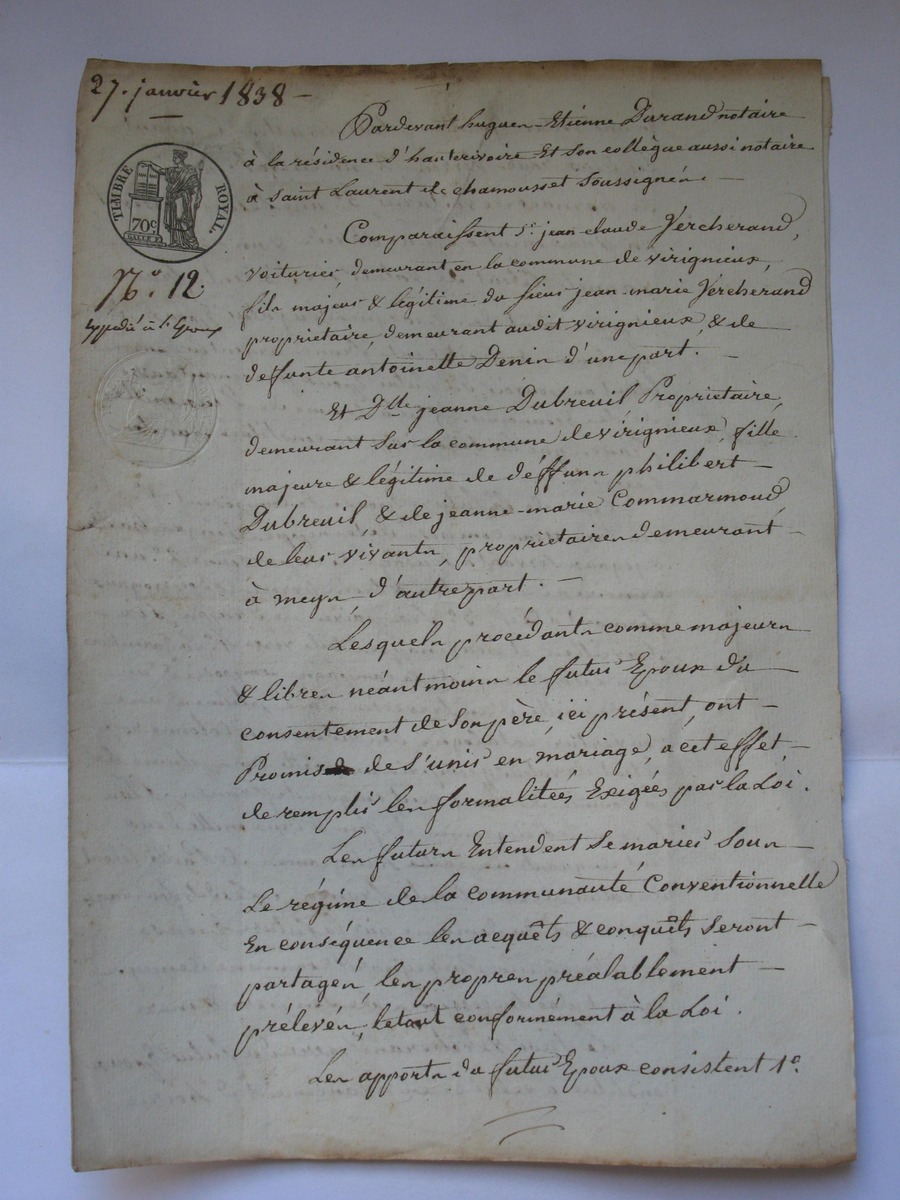 27. janvier 1838 —
Pardevant hugues-Etienne Durand notaire
à la résidence d'hauterivoire Et Son collègue aussi notaire
à Saint Laurent de chamousset Soussignés. —
TIMBRE ROYAL.
70c.
Comparaissent Sr. jean-claude Vercherand,
voiturier, demeurant en la commune de virignieux,
No. 12.
fils majeur & légitime du sieur jean-marie Vercherand
expédié à l'Epoux
propriétaire, demeurant audit virignieux, & de
defunte antoinette Denis d'une part. —
Et Dlle jeanne Dubreuil Propriétaire,
demeurant Sur la commune de virignieux, fille
majeure & légitime de déffuns philibert —
Dubreuil, & de jeanne-marie Commarmond,
de leur vivants, propriétaires demeurant —
à meys, d'autre part. —
Lesquels procédants comme majeurs
& libres néantmoins le futur Epoux du —
consentement de Son père, ici présent, ont —
Promis de S'unir en mariage, a cet effet —
de remplir les formalitées Exigées par la Loi.
Les futurs Entendent Se marier Sous —
Le régime de la communauté Conventionnelle
En conséquence les acquêts & conquêts Seront —
partagés, les propres préalablement —
prélevés, letout conformément à la Loi.
Les apports du futur Epoux consistent 1o.